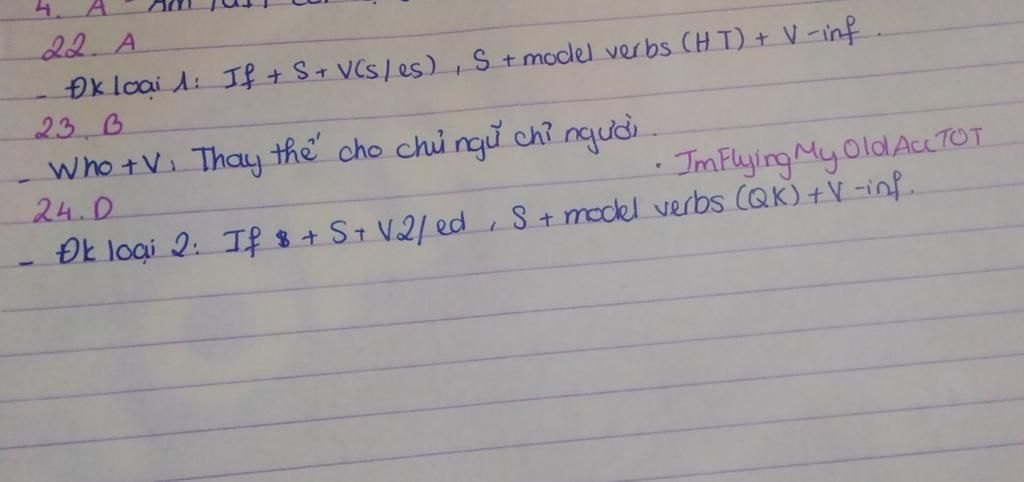 4. A
22. A
- Đk loại 1: If + S + V(s/es), S + model verbs (HT) + V-inf.
23. B
- Who + V, Thay thế cho chủ ngữ chỉ người.
. ImFlyingMyOldAccTOT
24. D
- Đk loại 2: If + S + V2/ed, S + model verbs (QK) + V-inf.